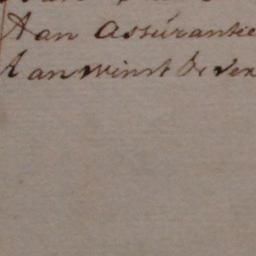 Aan Assúrantie
Aan winst & ver